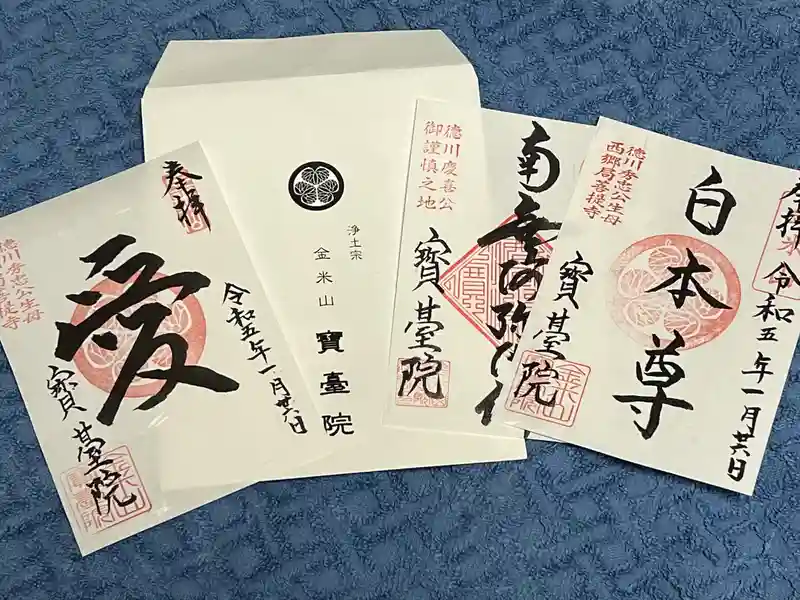 奉拝
愛
令和五年一月廿六日
德川秀忠公生母
西郷局菩提寺
寳臺院
浄土宗
金米山
寶臺院
德川慶喜公
御謹慎之地
南無阿弥陀仏
寳臺院
奉拝
白本尊
令和五年一月廿六日
德川秀忠公生母
西郷局菩提寺
寳臺院
金米山